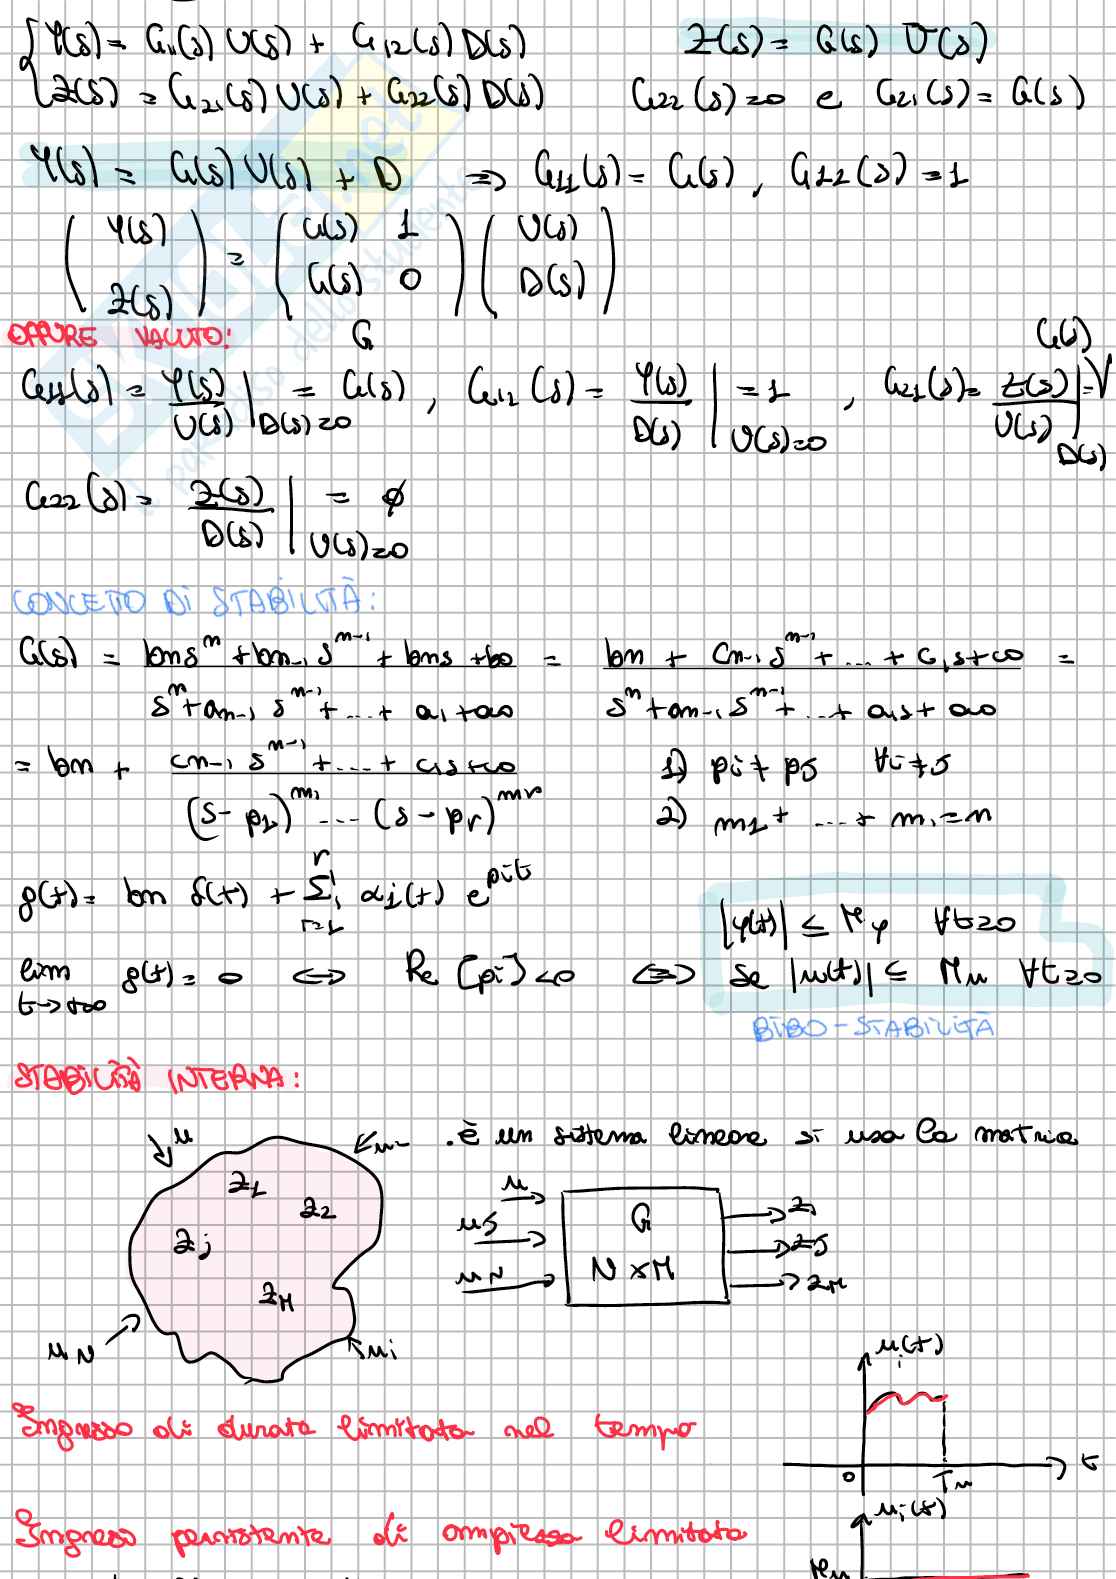 Y(s) = G11(s) U(s) + G12(s) D(s)    Z(s) = G(s) U(s)
Z(s) = G21(s) U(s) + G22(s) D(s)    G22(s)=0 e G21(s) = G(s)
Y(s) = G(s) U(s) + D ⇒ G11(s) = G(s), G12(s) = 1
(Y(s) Z(s)) = (G(s) 1 G(s) 0) (U(s) D(s))
OPPURE VALUTO: G
G11(s) = Y(s)/U(s) |D(s)=0 = G(s), G12(s) = Y(s)/D(s) |U(s)=0 = 1, G21(s) = Z(s)/U(s) |D(s) = G(s)
G22(s) = Z(s)/D(s) |U(s)=0 = ∅
CONCETTO DI STABILITÀ:
G(s) = bn s^n + bn-1 s^n-1 + bns + b0 / s^n + an-1 s^n-1 + ... + a1 + a0 = bn + cn-1 s^n-1 + ... + c1s + c0 / s^n + an-1 s^n-1 + ... + a1s + a0 =
= bn + cn-1 s^n-1 + ... + c1s + c0 / (s - p1)^m1 ... (s - pr)^mr    1) pi ≠ pj ∀i ≠ j
2) m1 + ... + mi = n
g(t) = bn δ(t) + Σ r i=1 αi(t) e^pit
|y(t)| ≤ My ∀t≥0
lim t→+∞ g(t) = 0 ⇔ Re[pi] <0 ⇔ se |u(t)| ≤ Mu ∀t≥0
BIBO-STABILITÀ
STABILITÀ INTERNA:
. è un sistema lineare si usa la matrice
u
z1 z2 zj zM
uN ui
u uj uN
G
N×M
z1 zj zM
Ingresso di durata limitata nel tempo
ui(t)
0 Tu t
Ingresso persistente di ampiezza limitata
ui(t)
Mu